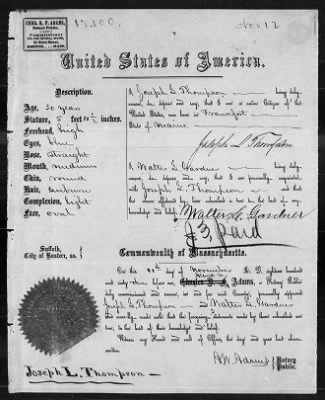 CHAS. B. F. ADAMS,
Notary Public,
Commissioner
BOSTON, MASS.
12,100.
Nov 12
United States of America.
Description.
Age, 30 years
Stature, 5 feet 10 ½ inches
Forehead, high
Eyes, blue
Nose, straight
Mouth, medium
Chin, round
Hair, auburn
Complexion, light
Face, oval
I Joseph L. Thompson being duly
sworn, do depose and say, that I am a native Citizen of the
United States, was born in Frankfort
State of Maine
Joseph L Thompson
I Walter L. Gardner being duly
sworn, do depose and say, that I am acquainted with
Joseph L. Thompson and that the
above affidavit by him subscribed is true to the best of my
knowledge and belief.
Walter L. Gardner
Suffolk,
City of Boston, ss.
Commonwealth of Massachusetts.
On this 10th day of November A. D. eighteen hundred
and sixty before me Adams, a Notary Public
Joseph L. Thompson and Walter L. Gardner
and severally made oath that the foregoing statements by them subscribed are
true, to the best of their knowledge and belief.
Witness my Hand and seal of Office the day and year above written.
Adams Notary
Public.
Joseph L. Thompson